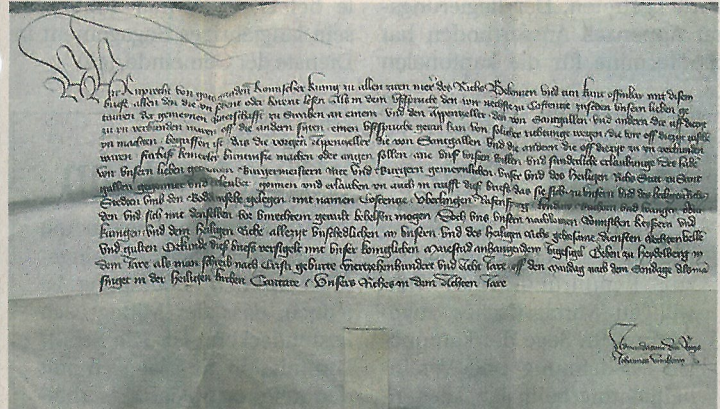 Wir Ruprecht von gots gnaden Romischer kunig zu allen zyten merer des Richs Bekennen und tun kunt offenbar mit disem
briefe allen den die yn sehent oder horent lesen Als in dem usspruche den wir nehste zu Costentze zuschen unsern lieben ge
truwen der gemeinen Ritterschafft zu Swaben an einem und den Appenzeller den von Santgallen und andern die uff dieczyt
zu yn verbunden waren uff die andern syten einem usspruche getan han von solicher wegen die vor uff dieczyt
zu machen begriffen ist das die vorgen Appenzeller die von Santgallen und die andern die uff dieczyt zu yn verbunden
waren furbaß keinerley buntnisse machen oder angen sollen ane unsern willen und sunderliche erlaubunge Des habe
wir unsern lieben getruwen Burgermeistern Rate und Burgern gemeinlichen unser und des Heiligen Richs Stat zu Sant
gallen gegunnet und erleubet gonnen und erlauben yn auch in crafft diß briefs das sie sich zu unsern und des heiligen Richs
Stedten umb den Bodensehe gelegen mit namen Costentze Uberlingen Ravenspurg Lindaw Buchorn und Wangen
den und sich mit denselben vor unrechtem gewalt behelffen mogen Doch uns unsern nachkomen Romischen keysern und
kunigen und dem Heiligen Riche allezyt unschedlichen an unsern und des Heiligen Richs gehorsame diensten rechten
und gulten Orkunde diß briefs versigelt mit unser kuniglichen Maiestad anhangendem Ingesigel Geben zu Heidelberg in
dem Jare als man schreib nach Cristi geburte viertzehenhundert und Acht Jare uff den mandag nach dem Sondage als man
singet in der Heiligen kirchen Cantate Unsers Richs in dem Achten Jare
Ad mandatum domini Regis
Johannes